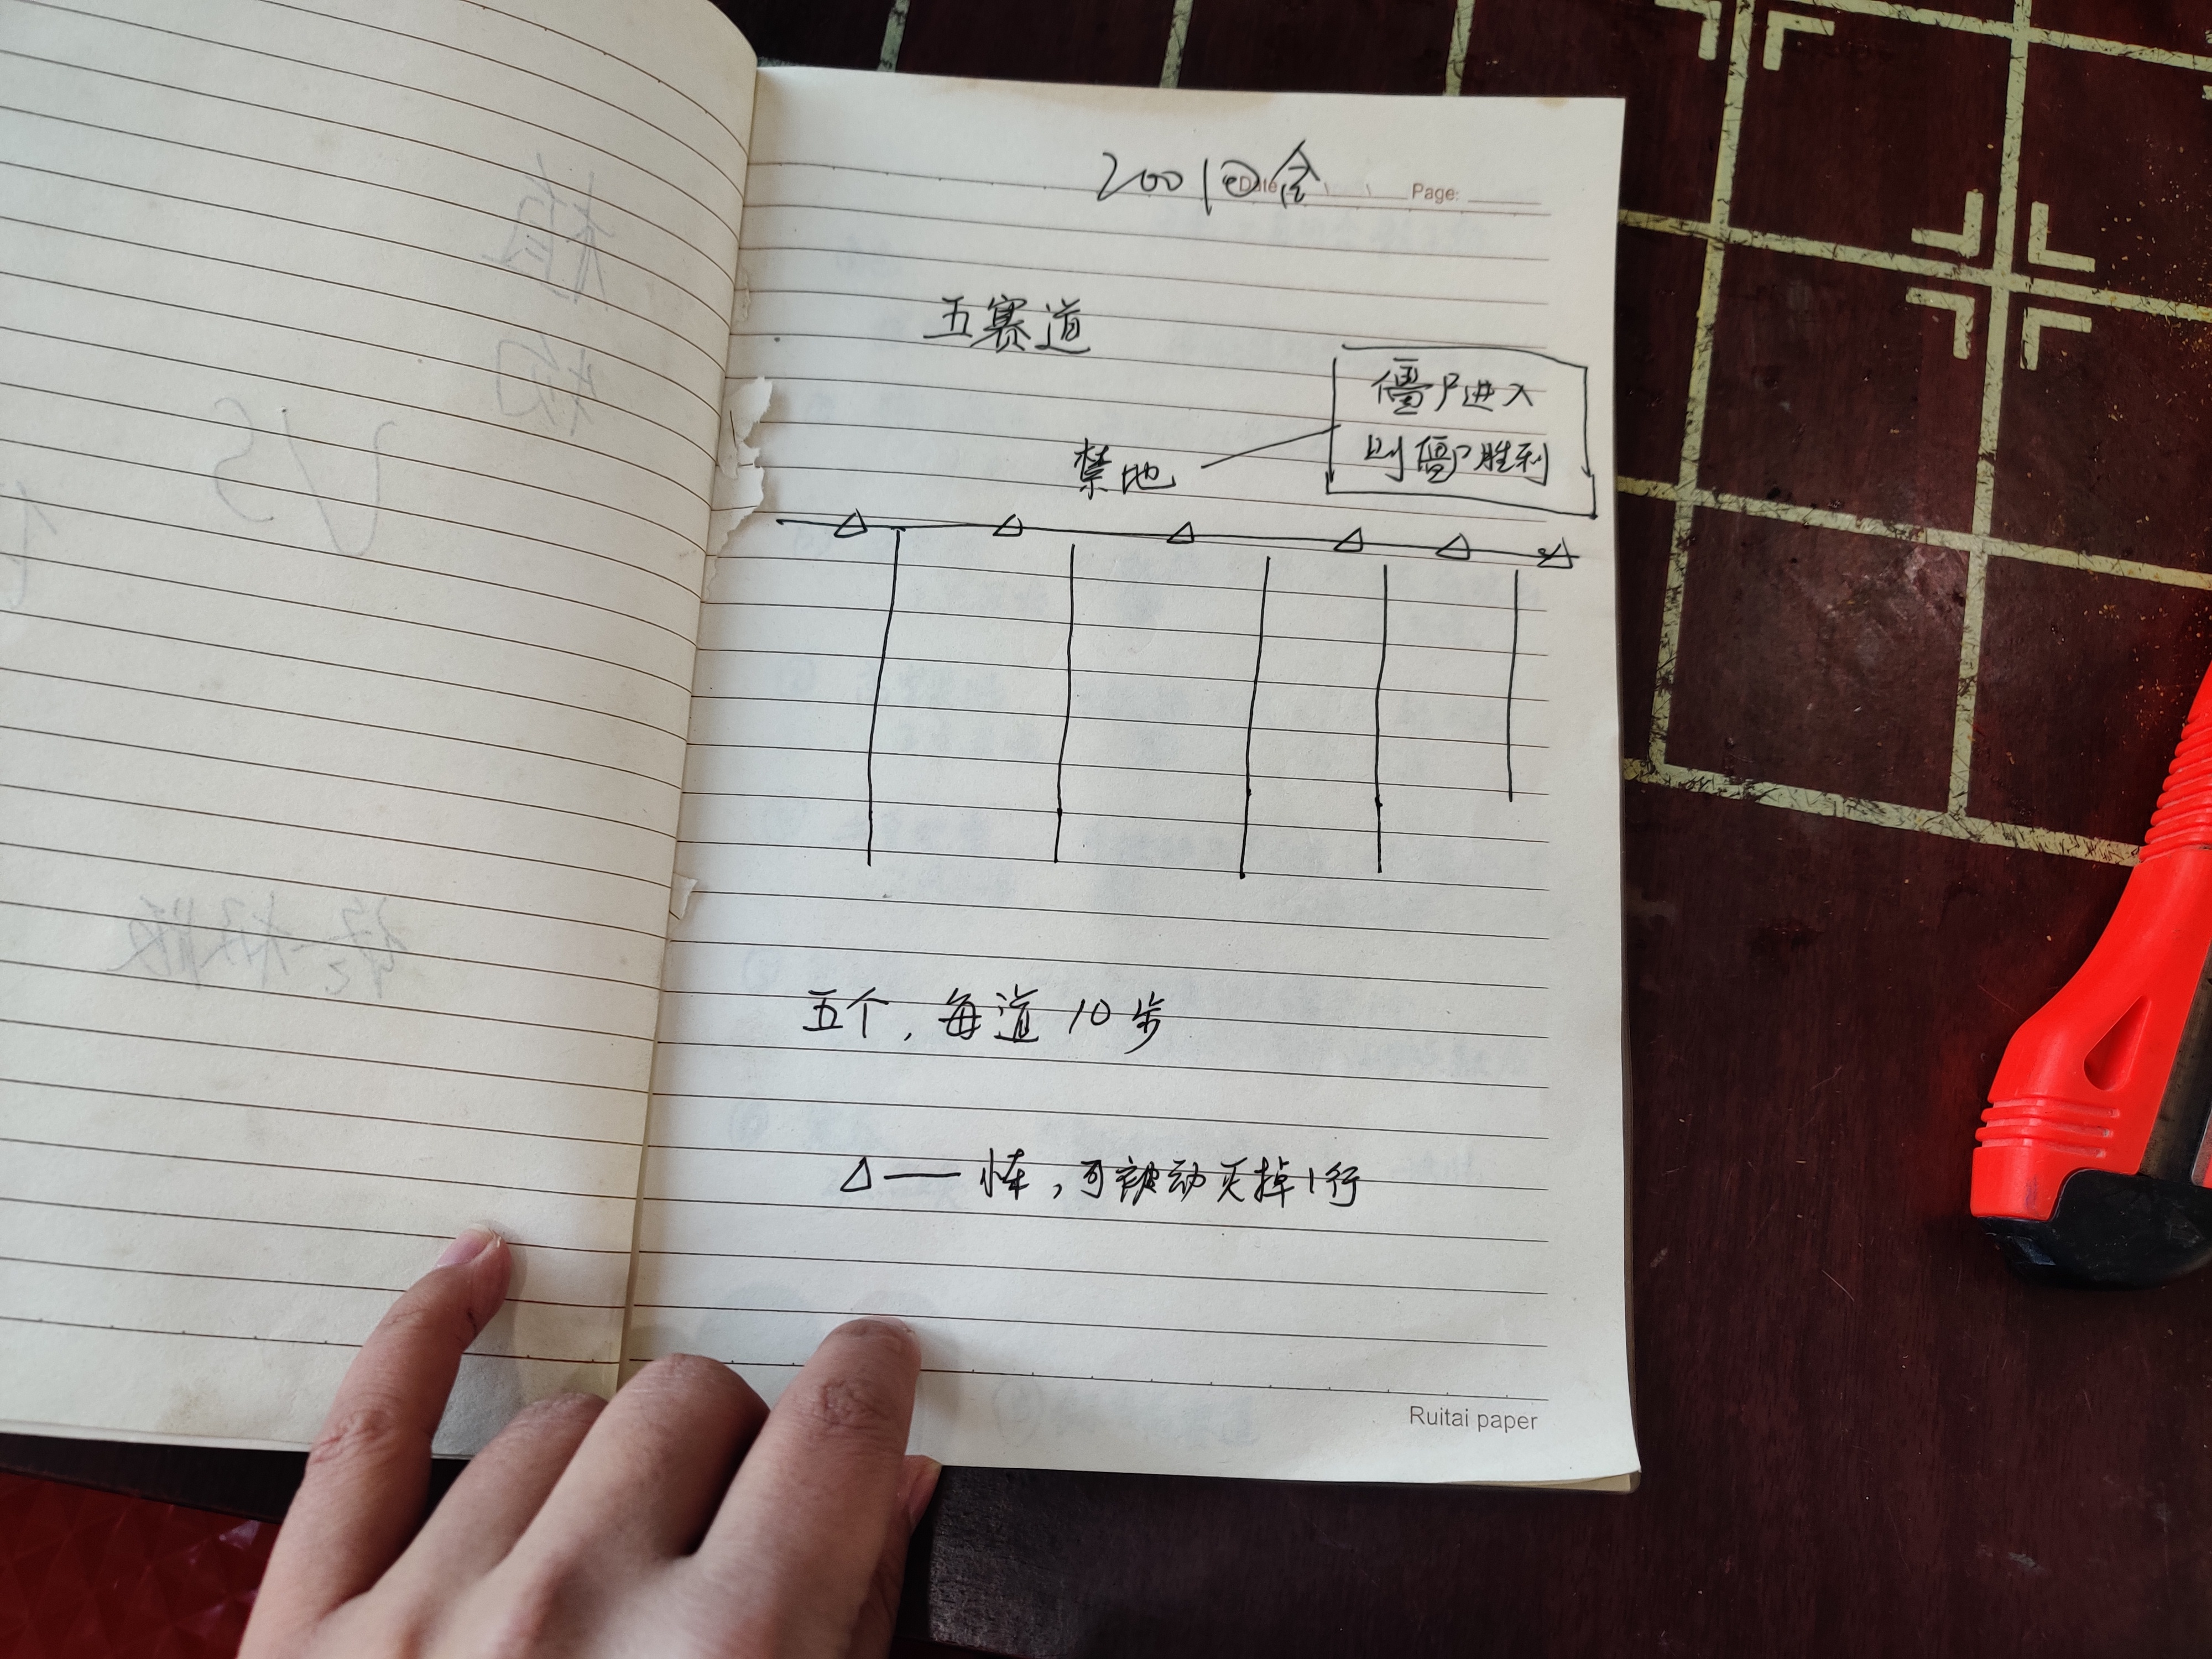 200 1回合
Date Page:
五赛道
僵尸进入
则僵尸胜利
禁地
五个，每道10步
△—— 小车，可被动灭掉1行
Ruitai paper
植
物
VS
终极版